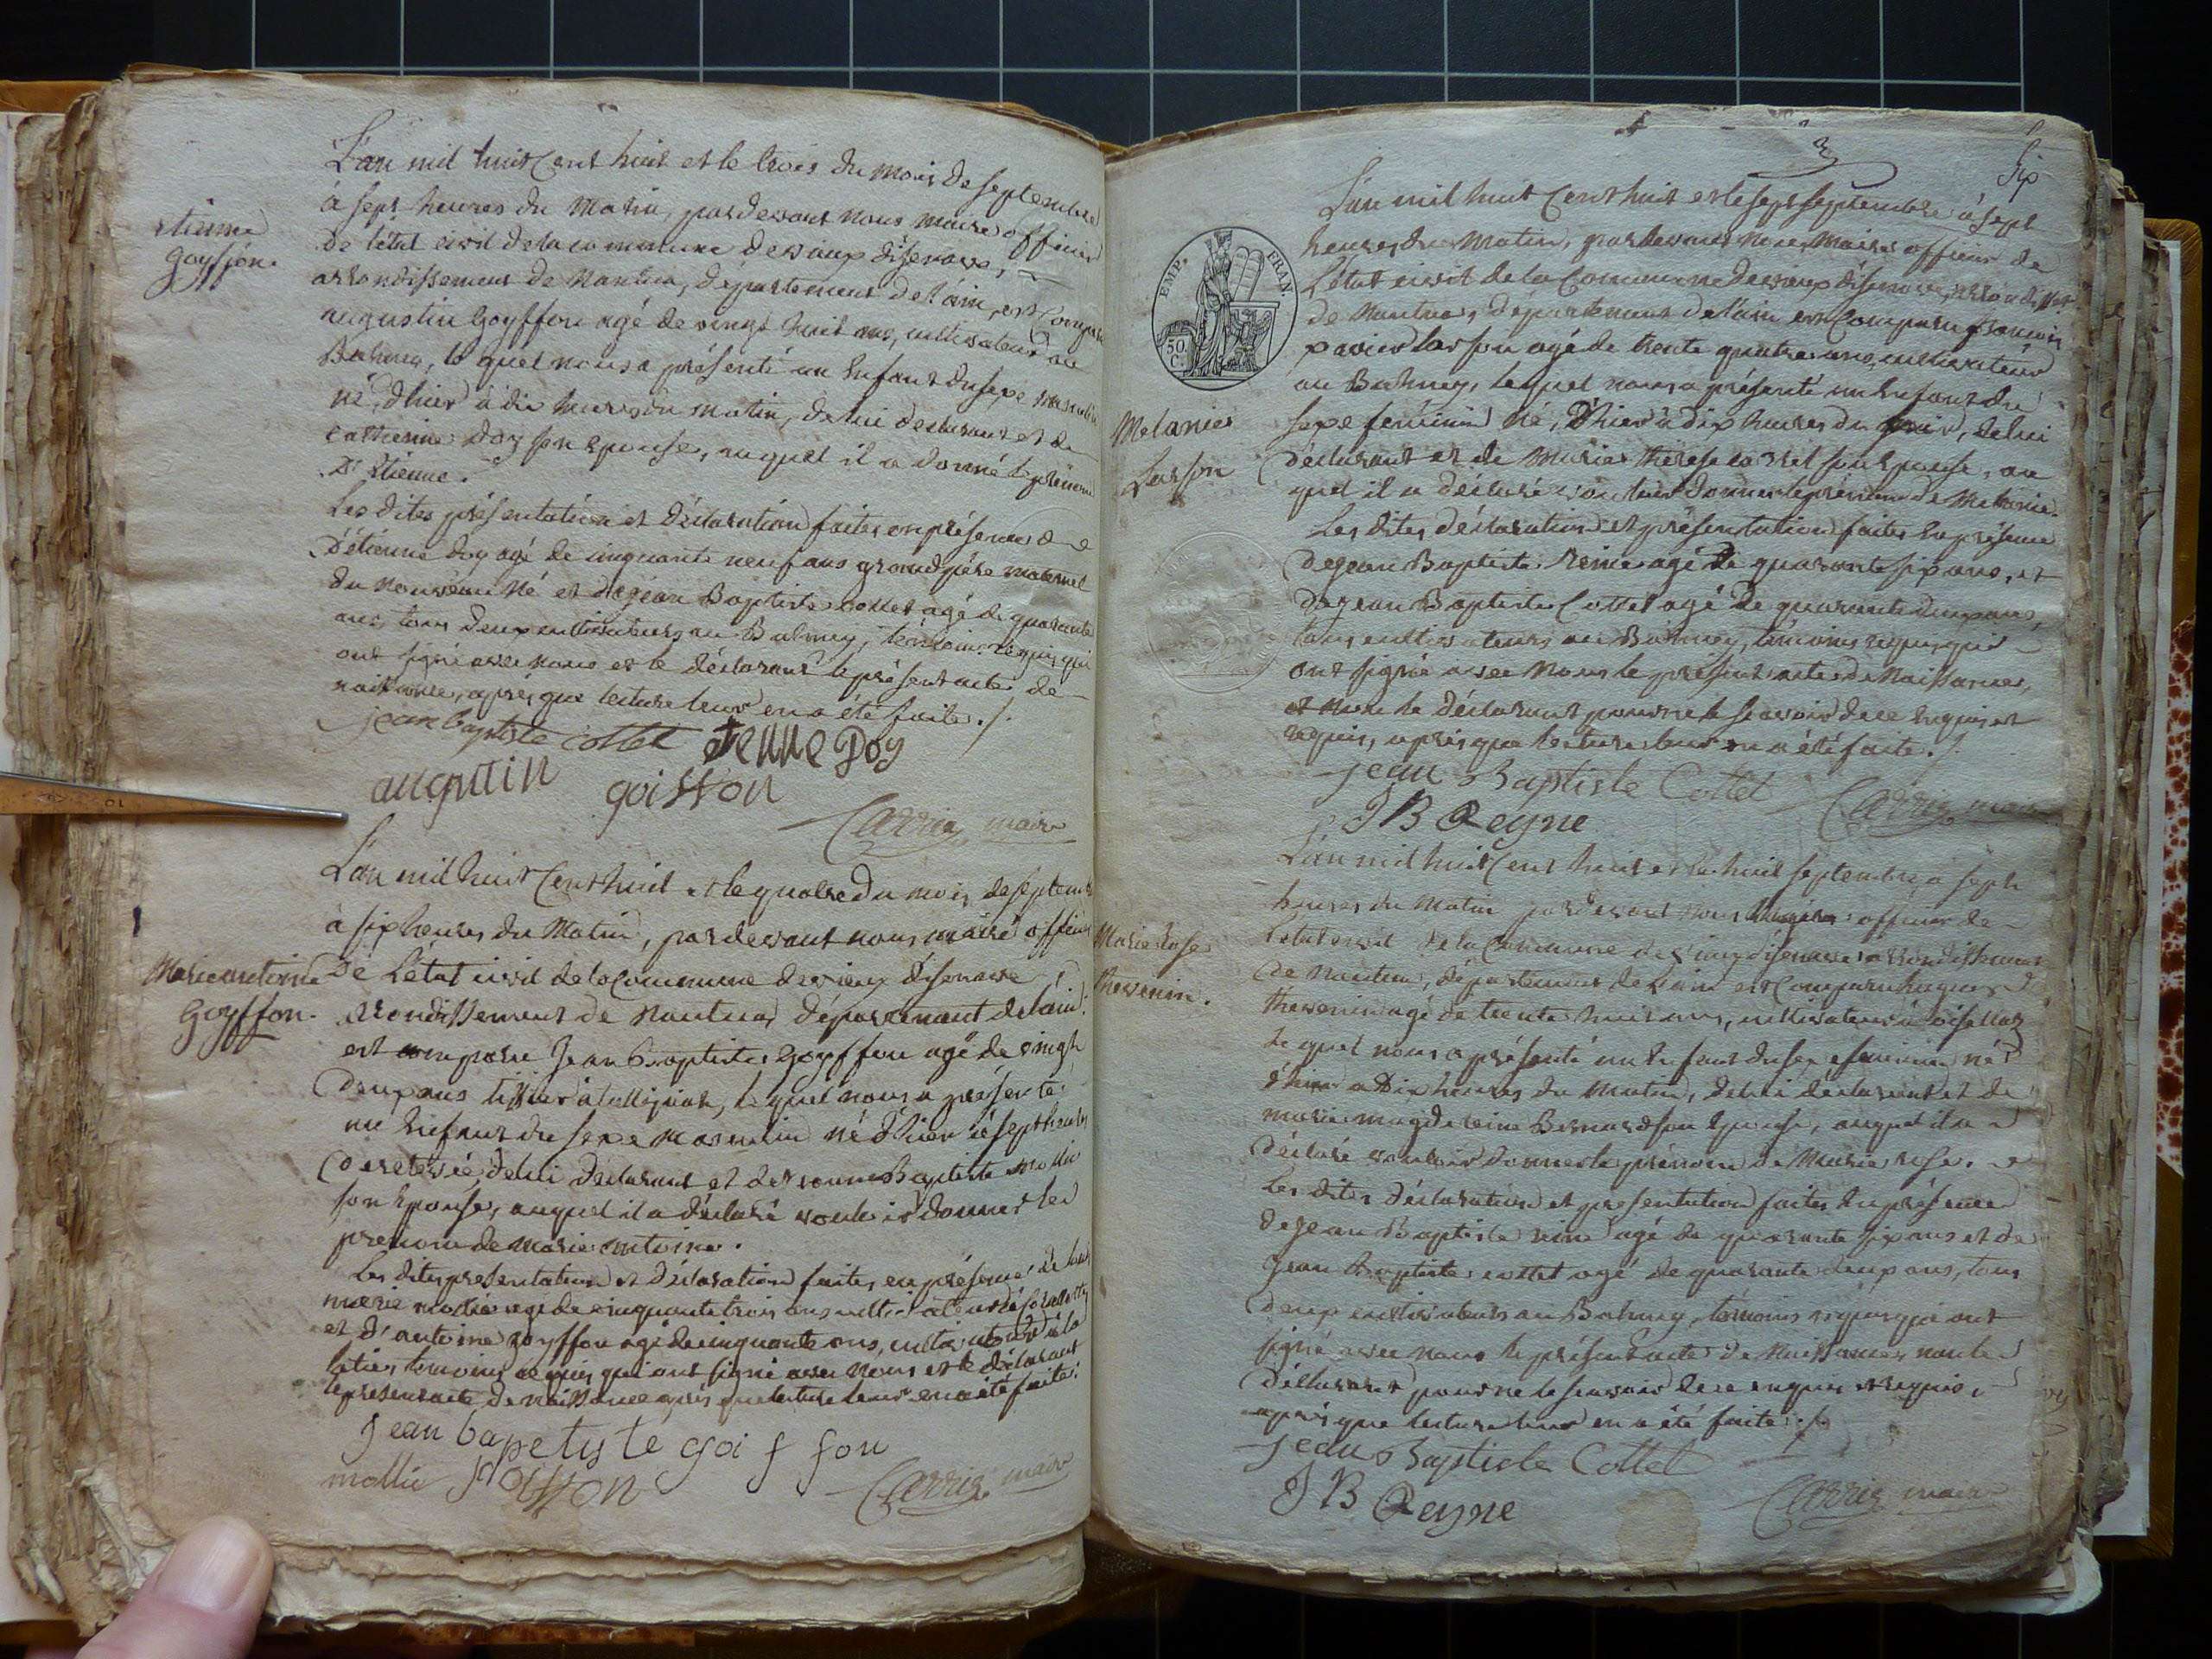 L'an mil huit Cent huit et le trois du mois de septembre
à sept heures du Matin, pardevant nous maire officier
de l'état civil de la commune de vieux d'isenave,
arrondissement de Nantua, département de l'ain, est Compar
augustin Goyffon agé de vingt huit ans, cultivateur au
Balmey, le quel nous a présenté un Enfant du sexe masculin
né, d'hier à dix heures du matin, de lui déclarant et de
Catherine doy son epouse, auquel il a donné le prénom
D'étienne.
Les dites présentation et Déclaration faites en présence de
D'étienne doy agé de cinquante neuf ans grand père maternel
du nouveau né et de jean Baptiste collet agé de quarante
ans, tous deux cultivateurs au Balmey, témoins requis, qui
ont signé avec nous et le déclarant le présent acte de
naissance, après que lecture leur en a été faite ./.
étienne
Goyffon.
jean baptiste collet etienne Doy
augutin goiffon
Carrier, maire
L'an mil huit Cent huit et le quatre du mois de septemb
à six heures du Matin, pardevant nous maire officier
De L'état civil de la Commune de vieux d'isenave
arrondissement de Nantua, département de l'ain
est comparu Jean Baptiste Goyffon agé de vingt
Deux ans tissier à, le quel nous a présenté
un Enfant du sexe Masculin né d'hier à sept heures
de lui Déclarant et de Baptiste mollie
son Epouse, auquel il a déclaré vouloir donner le
prenom de Marie antoine.
Les dites presentation et Déclaration faites, en présence de
marie mollie agé de cinquante trois ans cultivateur
et d'antoine goyffon agé de cinquante ans, cultivateur à la
témoins requis qui ont signé avec nous et le déclarant
le present acte de naissance après que lecture leur en a été faite.
Marie antoine
Goyffon.
Jean bapetiste goiffon
mollie goiffon
Carrier, maire
3
Six
L'an mil huit Cent huit et le sept septembre à sept
heures du Matin, pardevant nous Maire officier de
L'état civil de la Commune de vieux d'isenave, arrondisst
de Nantua, département de l'ain est Comparu françois
xavier Lasson agé de trente quatre ans, cultivateur
au Balmey, lequel nous a présenté un Enfant du
sexe feminin né, D'hier à dix heures du soir, de lui
déclarant et de Marie therese son Epouse, au
quel il a déclaré vouloir donner le prénom de Melanie.
Les dites déclaration et présentation faites En présence
de jean Baptiste reine agé de quarante six ans, et
de jean Baptiste Collet agé de quarante deux ans,
tous cultivateurs au Balmey, témoins requis, qui
ont signé avec Nous le présent acte de Naissance,
et non le Déclarant pour ne le scavoir de ce Enquis et
requis, après que lecture leur en a été faite ./.
EMP. FRAN.
50 C.
Melanie
Lasson
jean Baptiste Collet
J B Reyne
Carrier, maire
L'an mil huit Cent huit et le huit septembre, à sept
heures du Matin pardevant nous Maire officier de
l'état civil de la Commune de vieux d'isenave arrondissement
de Nantua, département de l'ain est Comparu hugues
thevenin agé de trente huit ans, cultivateur à oisellaz
le quel nous a présenté un Enfant du sexe feminin né
d'hier à Dix heures du Matin, de lui déclarant et de
marie magdeleine Bernard son Epouse, auquel il a
Déclaré vouloir donner le prénom de Marie rose.
Les dites déclaration et presentation faites En présence
de jean Baptiste reine agé de quarante six ans et de
jean Baptiste collet agé de quarante deux ans, tous
deux cultivateurs au Balmey, témoins requis qui ont
signé avec nous le présent acte de Naissance, non le
Déclarant pour ne le scavoir de ce enquis et requis,
après que lecture leur en a été faite ./.
Marie Rose
thevenin.
jean Baptiste Collet
J B Reyne
Carrier, maire